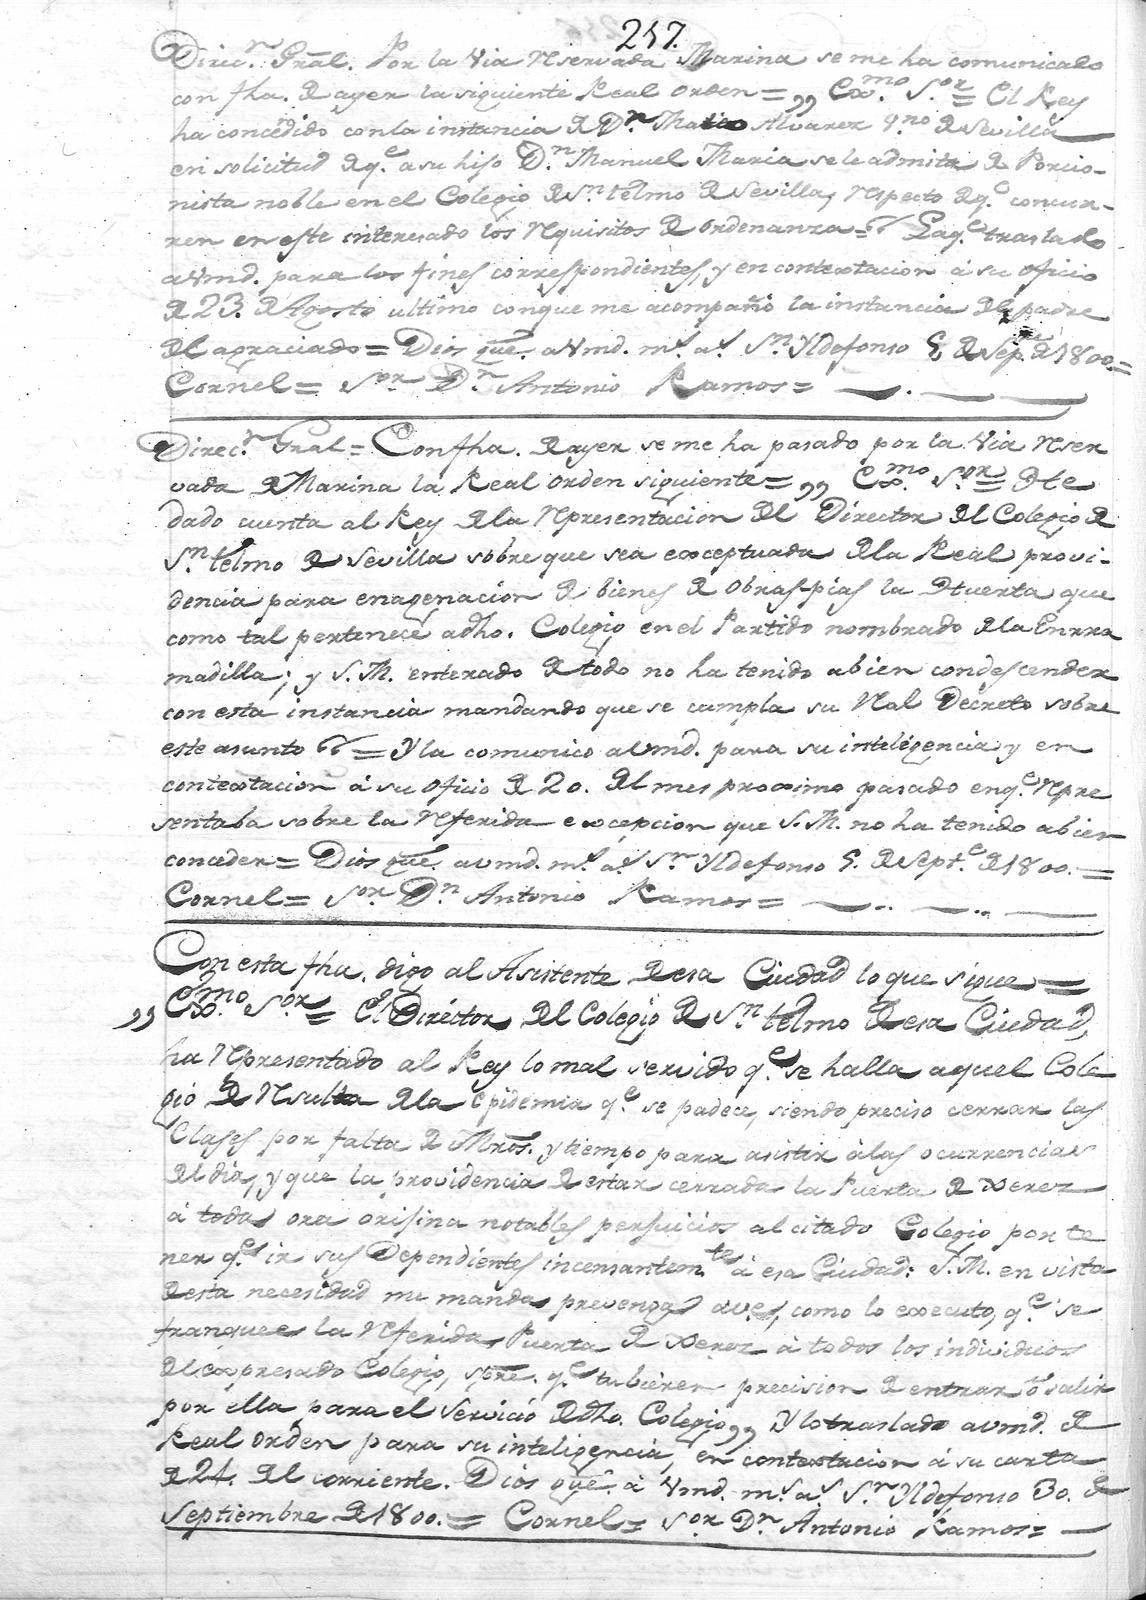 257.
Direc.n Gral. Por la Via Reservada Marina se me ha comunicado
con fha. de ayer la siguiente Real orden = „ Exmo. Sor. = El Rey
ha concedido con la instancia de Dn. Alvarez vno de Sevilla
en solicitud de q.e a su hijo Dn. Manuel Maria se le admita de Porcio-
nista noble en el Colegio de Sn. telmo de Sevilla, respecto de q.e concur-
ren en este interesado los requisitos de ordenanza = traslado
a Vmd. para los fines correspondientes, y en contextacion á su oficio
de 23. de Agosto ultimo con que me acompañó la instancia del padre
del agraciado = Dios gue. a Vmd. m.s a.s Sn. Yldefonso 5 de Sep.e de 1800. =
Cornel = Sor. Dn. Antonio Ramos =
Direc.n Gral = Con fha. de ayer se me ha pasado por la Via reser
vada de Marina la Real orden siguiente = „ Exmo. Sor. = He
dado cuenta al Rey de la representacion del Director del Colegio de
Sn. telmo de Sevilla sobre que sea exceptuada de la Real provi-
dencia para enagenacion de bienes de obras-pias la Huerta que
como tal pertenece a dho. Colegio en el Partido nombrado de la Enrra
madilla; y S. M. enterado de todo no ha tenido a bien condescender
con esta instancia mandando que se cumpla su Real Decreto sobre
este asunto = Y la comunico a Vmd. para su inteligencia y en
contextacion á su oficio de 20. del mes proximo pasado en q.e repre
sentaba sobre la referida excepcion que S. M. no ha tenido a bien
conceder = Dios gue. a Vmd. m.s a.s Sn. Yldefonso 5. de Sept.e de 1800. =
Cornel = Sor. Dn. Antonio Ramos =
Con esta fha. digo al Asistente de esa Ciudad lo que sigue =
„ Exmo. Sor. = El Director del Colegio de Sn. telmo de esa Ciudad,
ha representado al Rey lo mal servido q.e se halla aquel Cole
gio de resulta de la epidemia q.e se padece, siendo preciso cerrar las
Clases por falta de Mros. y tiempo para asistir á las ocurrencias
del dia, y que la providencia de estar cerrada la Puerta de Xerez
á todas ora orijina notables perjuicios al citado Colegio por te
ner q.e ir sus Dependientes incensantem.te á esa Ciudad: S. M. en vista
de esta necesidad me manda prevenga a V.E., como lo executo, q.e se
franquee la referida Puerta de Xerez á todos los individuos
del expresado Colegio, spre. q.e tubieren precision de entrar ó salir
por ella para el servicio de dho. Colegio „ Y lo traslado a Vmd. de
Real orden para su inteligencia, en contextacion á su carta
de 24. del corriente. Dios gue. á Vmd. m.s a.s Sn. Yldefonso 30. de
Septiembre de 1800. = Cornel = Sor. Dn. Antonio Ramos =